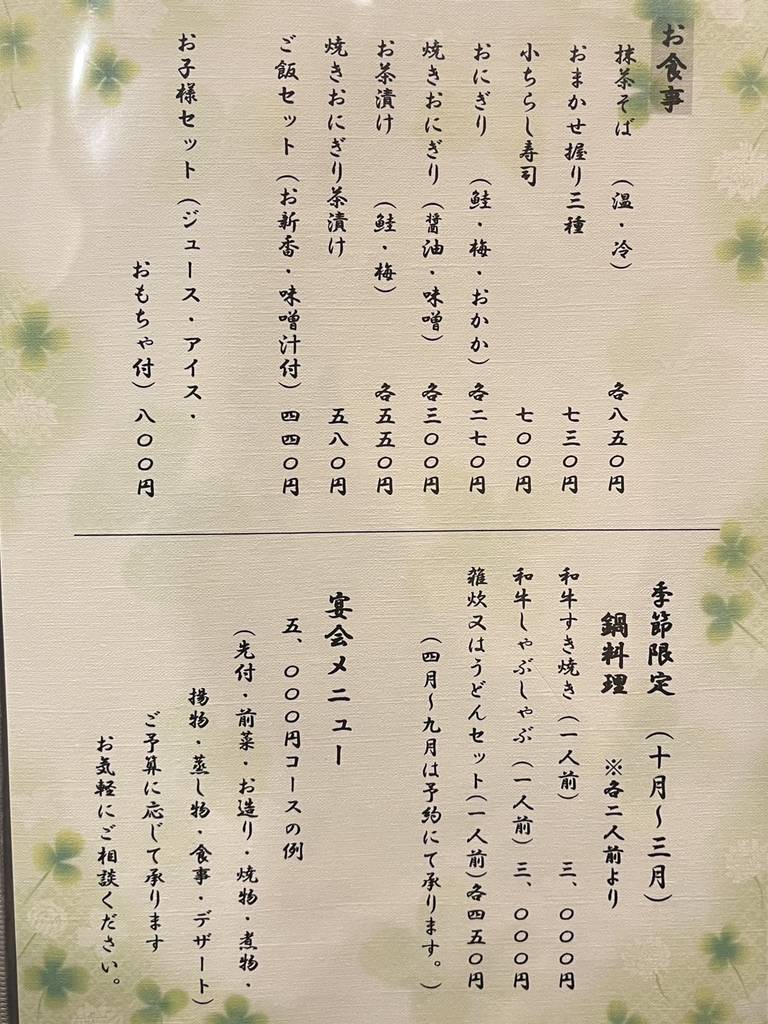 お食事
抹茶そば (温・冷) 各八五〇円
おまかせ握り三種 七三〇円
小ちらし寿司 七〇〇円
おにぎり (鮭・梅・おかか) 各二七〇円
焼きおにぎり (醤油・味噌) 各三〇〇円
お茶漬け (鮭・梅) 各五五〇円
焼きおにぎり茶漬け 五八〇円
ご飯セット (お新香・味噌汁付) 四四〇円
お子様セット (ジュース・アイス・
おもちゃ付) 八〇〇円
季節限定 (十月〜三月)
鍋料理 ※各二人前より
和牛すき焼き (一人前) 三、〇〇〇円
和牛しゃぶしゃぶ (一人前) 三、〇〇〇円
雑炊又はうどんセット(一人前)各四五〇円
(四月〜九月は予約にて承ります。)
宴会メニュー
五、〇〇〇円コースの例
(先付・前菜・お造り・焼物・煮物・
揚物・蒸し物・食事・デザート)
ご予算に応じて承ります
お気軽にご相談ください。